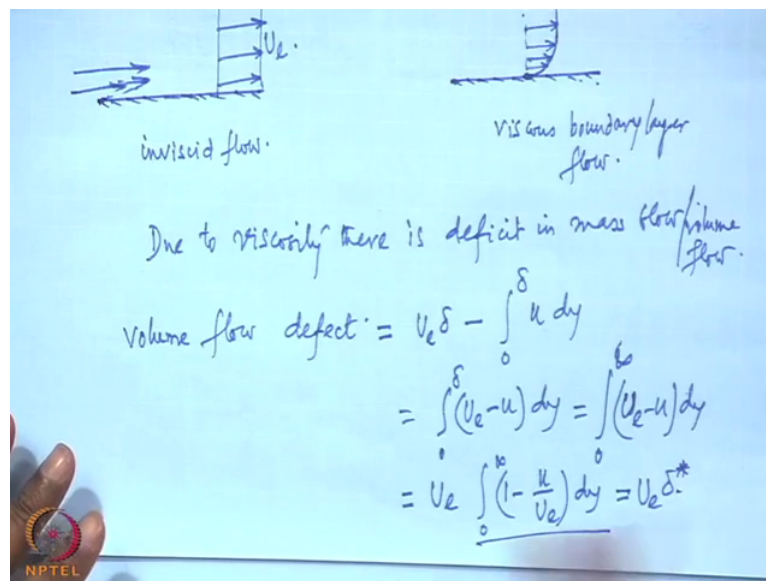 Ue.
inviscid flow.
viscous boundary layer
flow.
Due to viscosity there is deficit in mass flow/volume
flow.
volume flow defect = Ueδ - ∫₀^δ u dy
= ∫₀^δ (Ue-u) dy = ∫₀^∞ (Ue-u) dy
= Ue ∫₀^∞ (1 - u/Ue) dy = Ue δ*
NPTEL